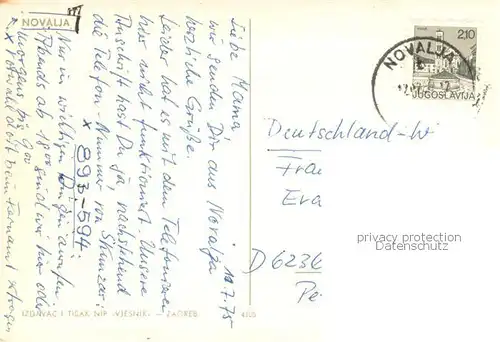 NOVALJA
Liebe Mama
wir senden Dir aus Novalja
herzliche Grüße.
11.7.75
Leider hat es mit dem Telefonieren
hier nicht funktioniert. Unsere
Anschrift hast Du ja nachstehend
die Telefon-Nummer von Skunzar:
x 893-594.
Nur in wichtigen Dingen anrufen.
Abends ab 18 00 sind wir hier oder
morgens bis 9 00
x Vorwahl dort beim Fernamt erfragen
IZDAVAČ I TISAK NIP »VJESNIK« — ZAGREB
2,10
NOVALJA
JUGOSLAVIJA
Deutschland-W
Frau
D 6236
privacy protection
Datenschutz